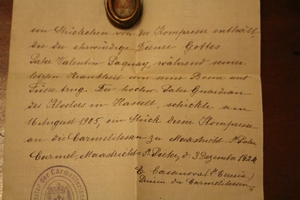 ein Stückchen von der Kompresse enthält,
die der ehrwürdige Diener Gottes
Pater Valentin Paquay, während seiner
letzten Krankheit um eine Bein am
Füße trug. Der hochw. Pater Guardian
des Klosters in Hasselt, schickte am
16 August 1905, ein Stück dieser Kompresse
an die Carmelitessen zu Maastricht
Carmel, Maastricht, 3 Dezember 1924
Carmelitessen